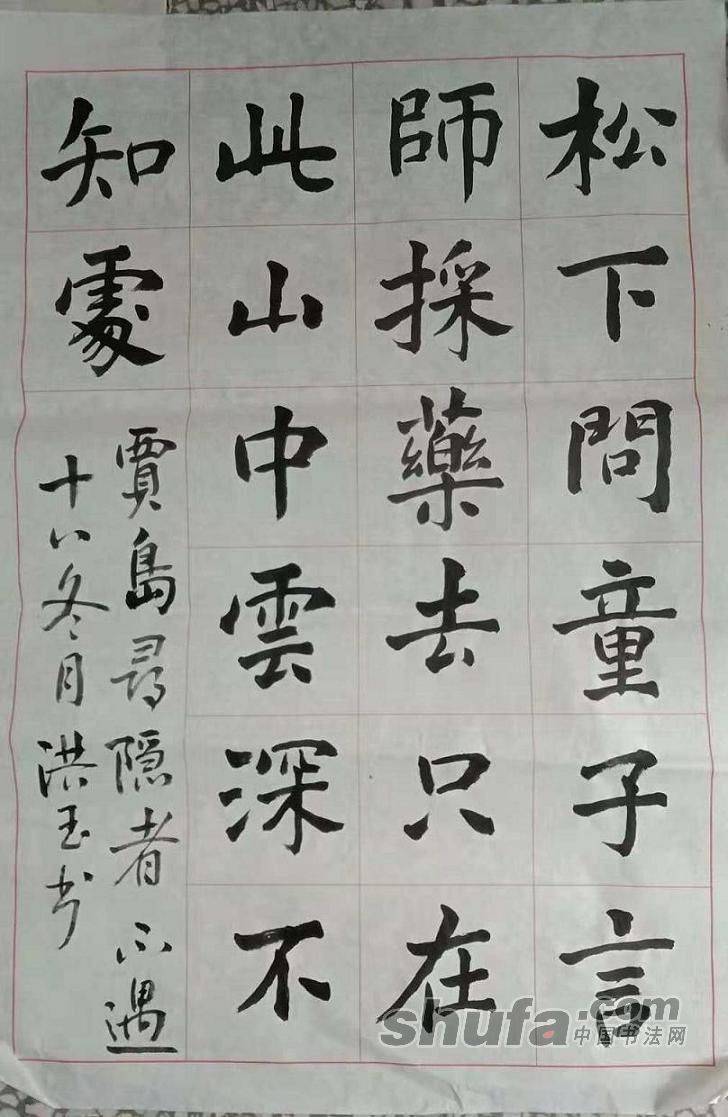 松下問童子言
師採藥去只在
此山中雲深不
知處
賈島尋隐者不遇
十八冬月洪玉书
shufa.com
中国书法网